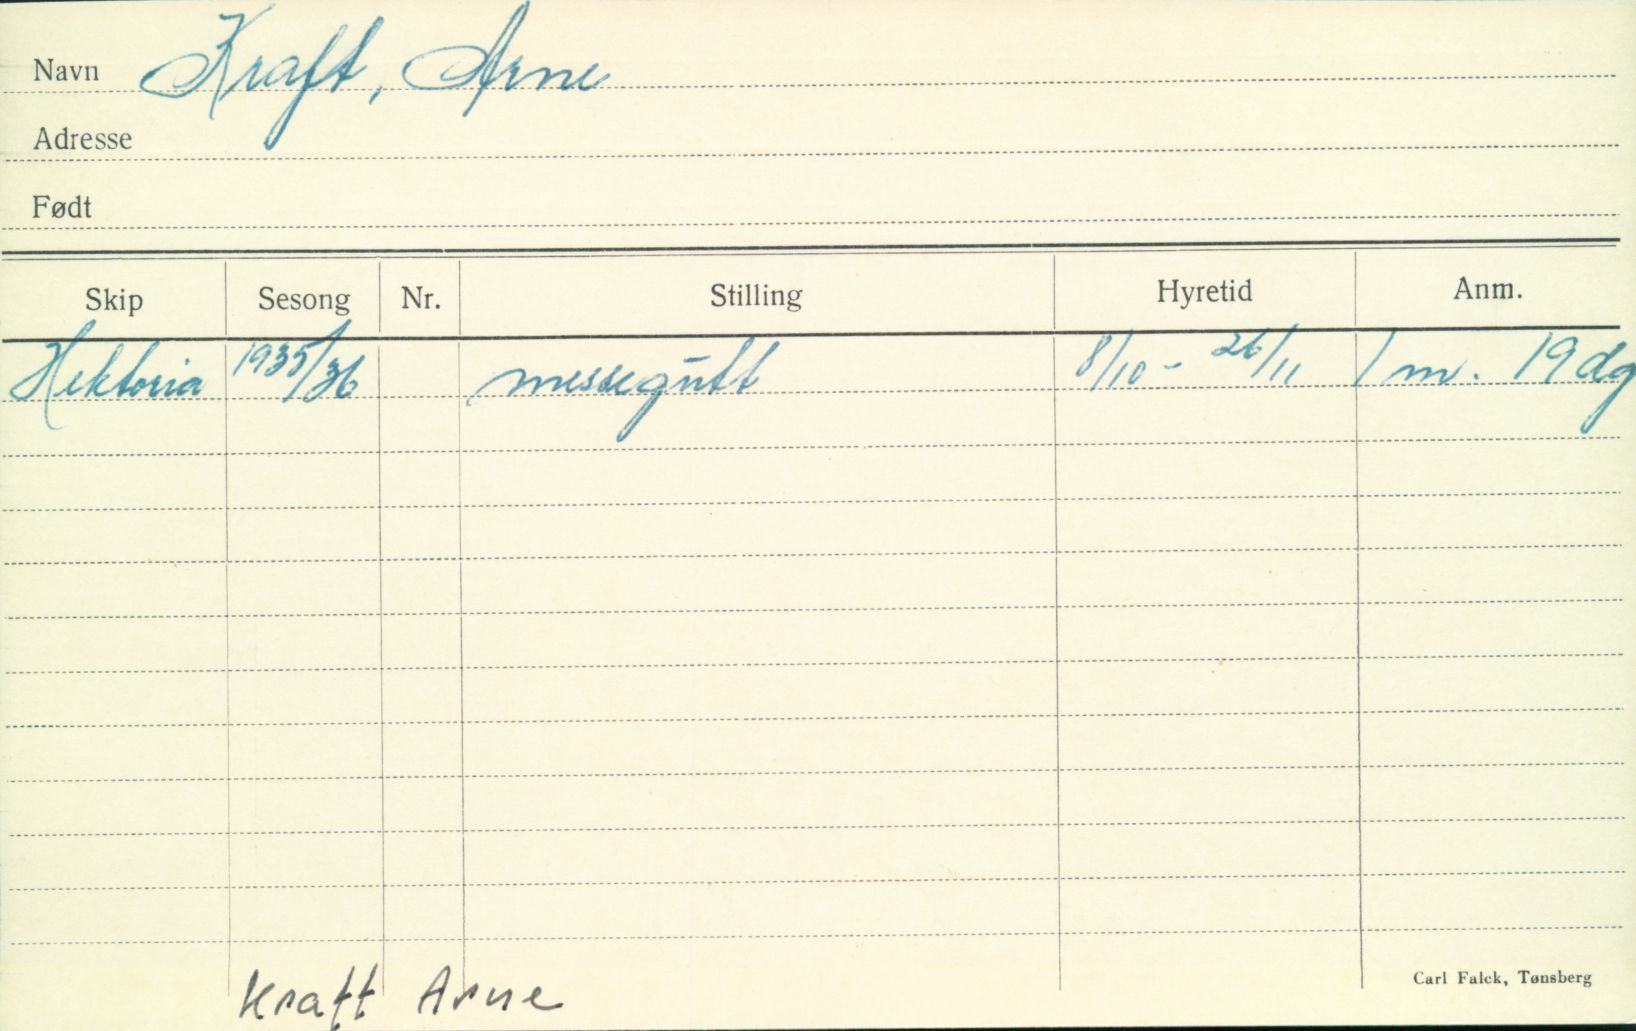 Navn Kraft, Arne
Adresse
Født
Skip Sesong Nr. Stilling Hyretid Anm.
Hektoria 1935/36 messegutt 8/10 - 26/11 1 m. 19 dg
Carl Falck, Tønsberg
Kraft Arne